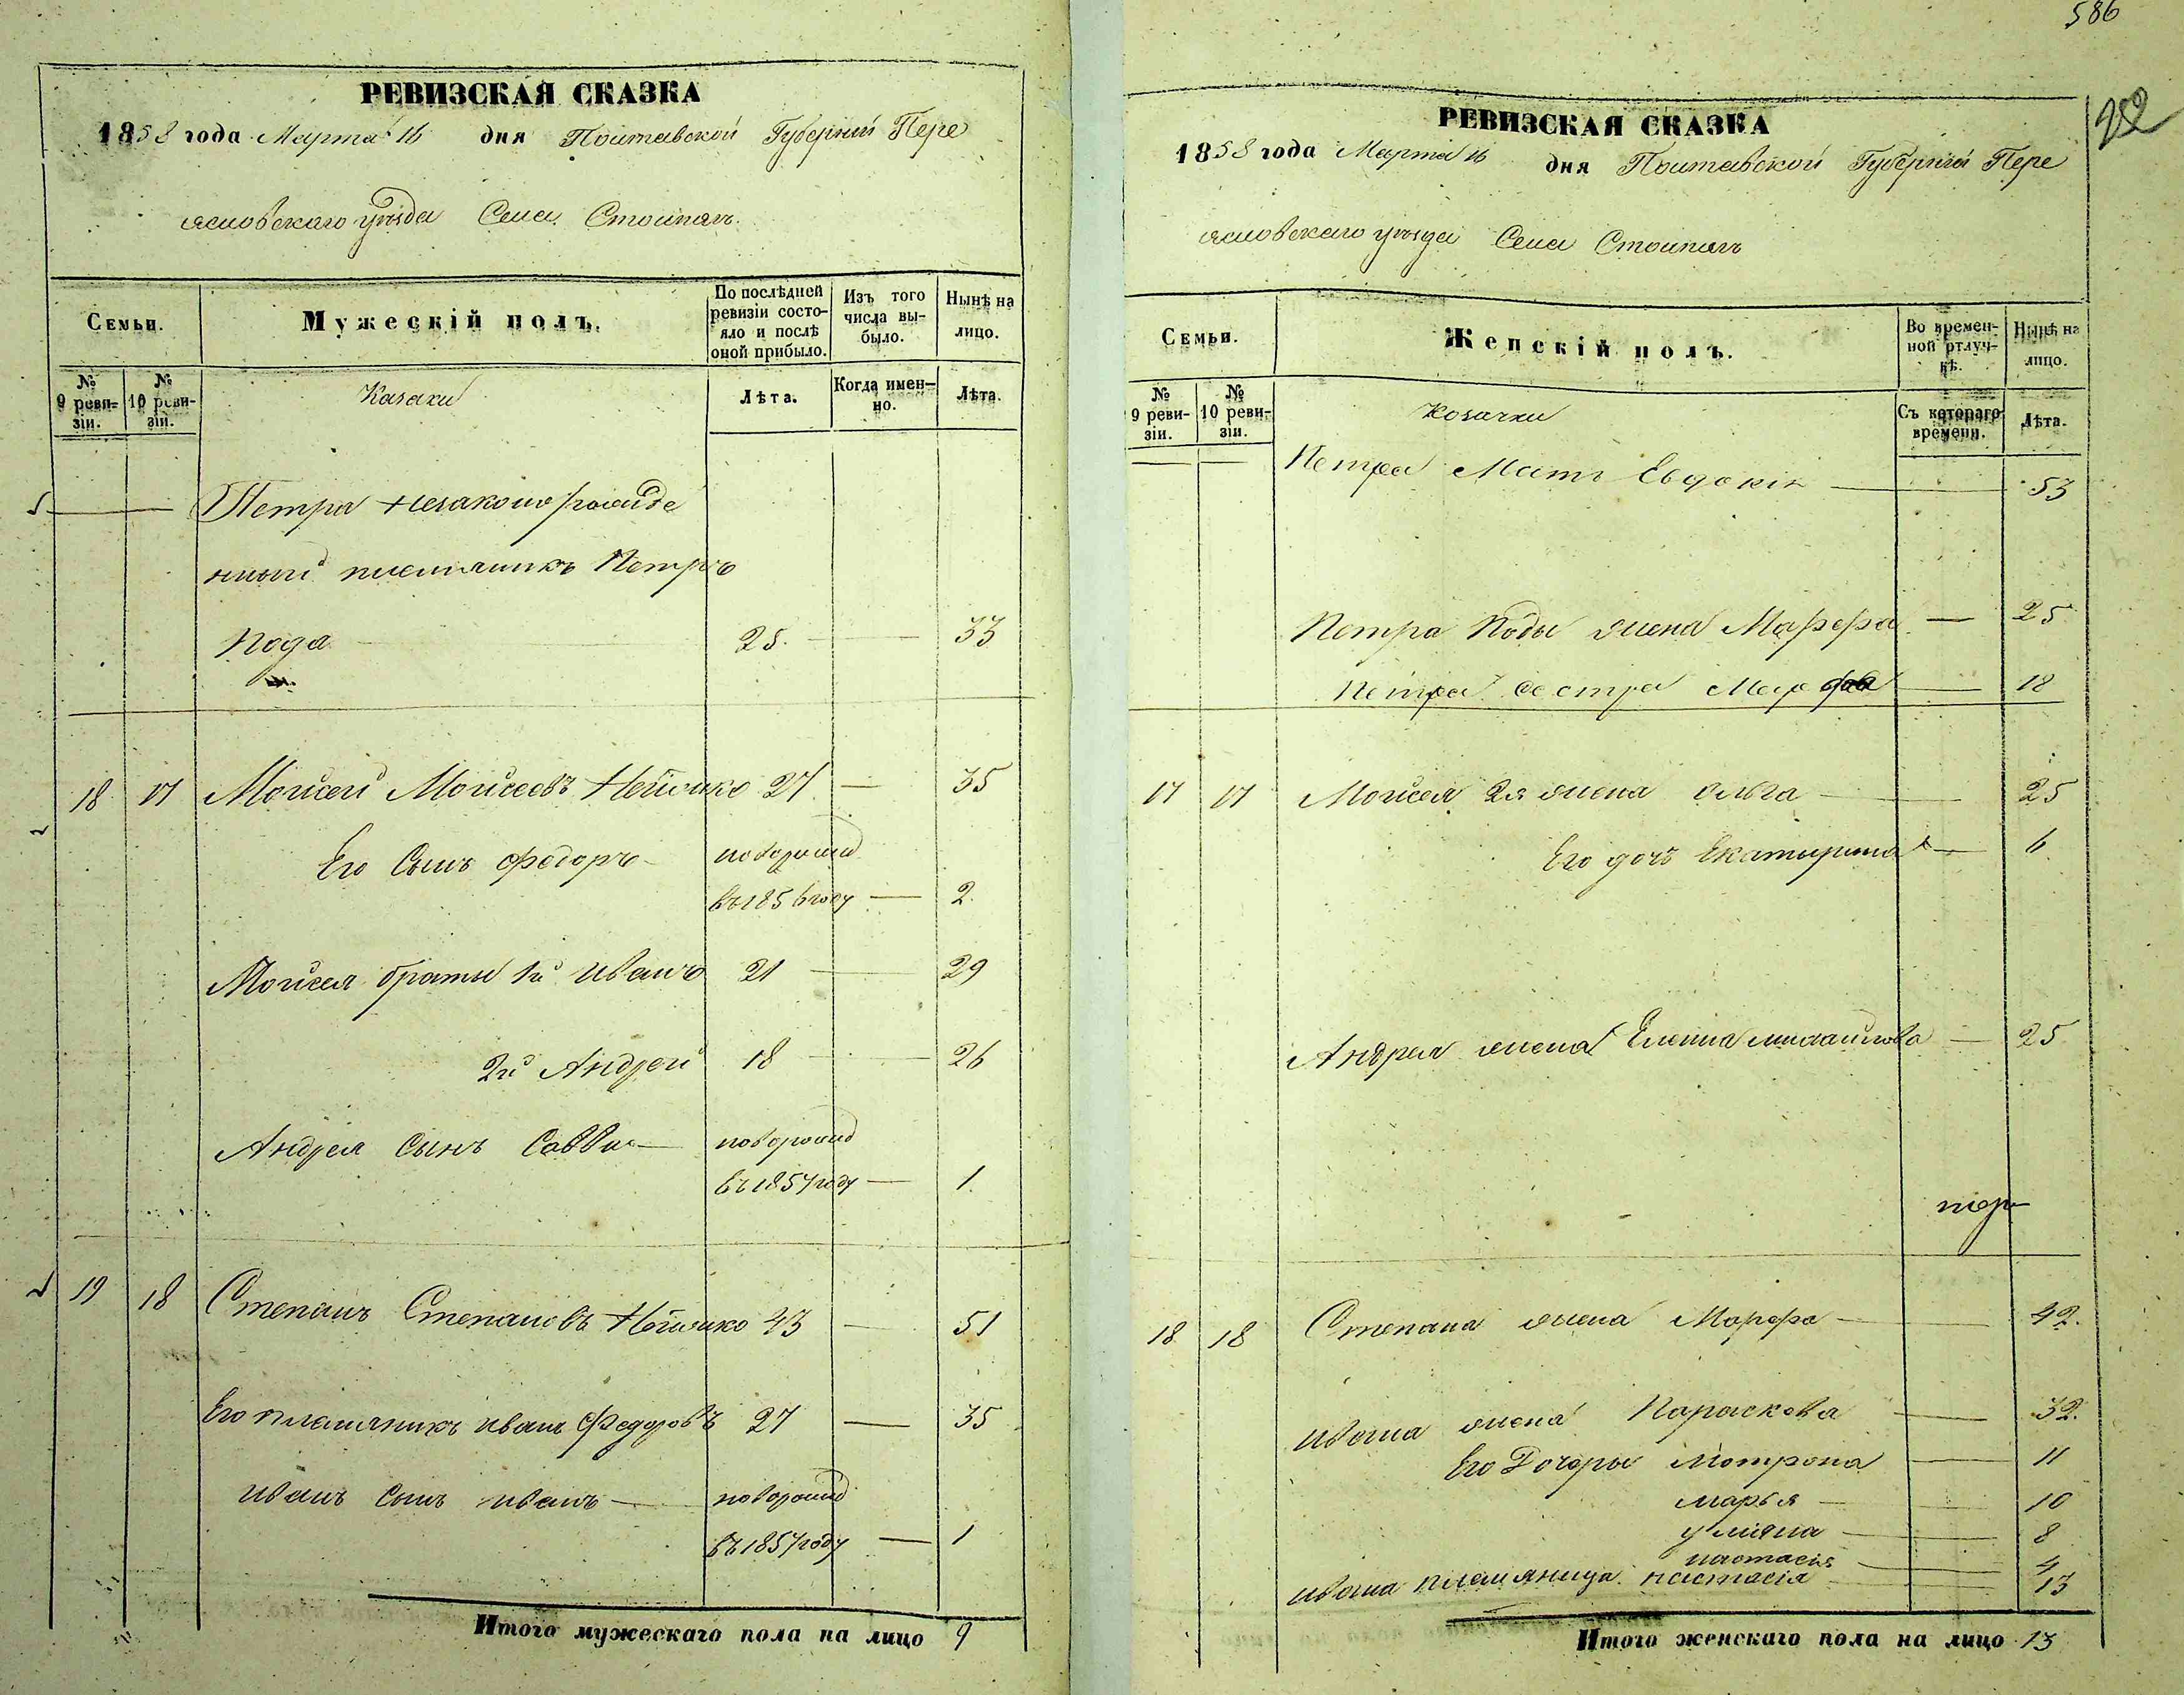 РЕВИЗСКАЯ СКАЗКА
1858 года Марта 16 дня Полтавской Губернии Пере
яславскаго уѣзда Села Столпягъ
Семьи.
Мужескій полъ.
По послѣдней ревизіи состояло и послѣ оной прибыло.
Изъ того числа выбыло.
Нынѣ на лицо.
№ 9 ревизіи.
№ 10 ревизіи.
Казаки
Лѣта.
Когда именно.
Лѣта.
Петра незаконорожде
нный племянникъ Петръ
Кода 25 33
18 17 Мойсей Мойсеевъ 27 35
Его Сынъ Федоръ новорожд
въ 1856 году 2
Мойсея браты 1й Иванъ 21 29
2й Андрей 18 26
Андрея Сынъ Савва новорожд
въ 1857 году 1
19 18 Степанъ Степановъ 43 51
Его племяникъ Иванъ Федоровъ 27 35
Иванъ Сынъ Иванъ новорожд
въ 1857 году 1
Итого мужескаго пола на лицо 9
586
РЕВИЗСКАЯ СКАЗКА
1858 года Марта 16 дня Полтавской Губерніи Пере
яславскаго уѣзда Села Столпягъ
Семьи.
Женскій полъ.
Во временной отлучкѣ.
Нынѣ на лицо.
№ 9 ревизіи.
№ 10 ревизіи.
Козачки
Съ котораго времени.
Лѣта.
Петра Мать Евдокія 53
Петра Коды жена Марфа 25
Петра сестра 18
17 17 Мойсея 2я жена Ольга 25
Его дочь Екатырина 6
Андрея жена Елена 25
18 18 Степана жена Марфа 42.
Ивана жена Параскева 32.
Его Дочеры Мотрона 11
Марья 10
Улияна 8
Настасія 4
Ивана племяница Настасія 13
Итого женскаго пола на лицо 13